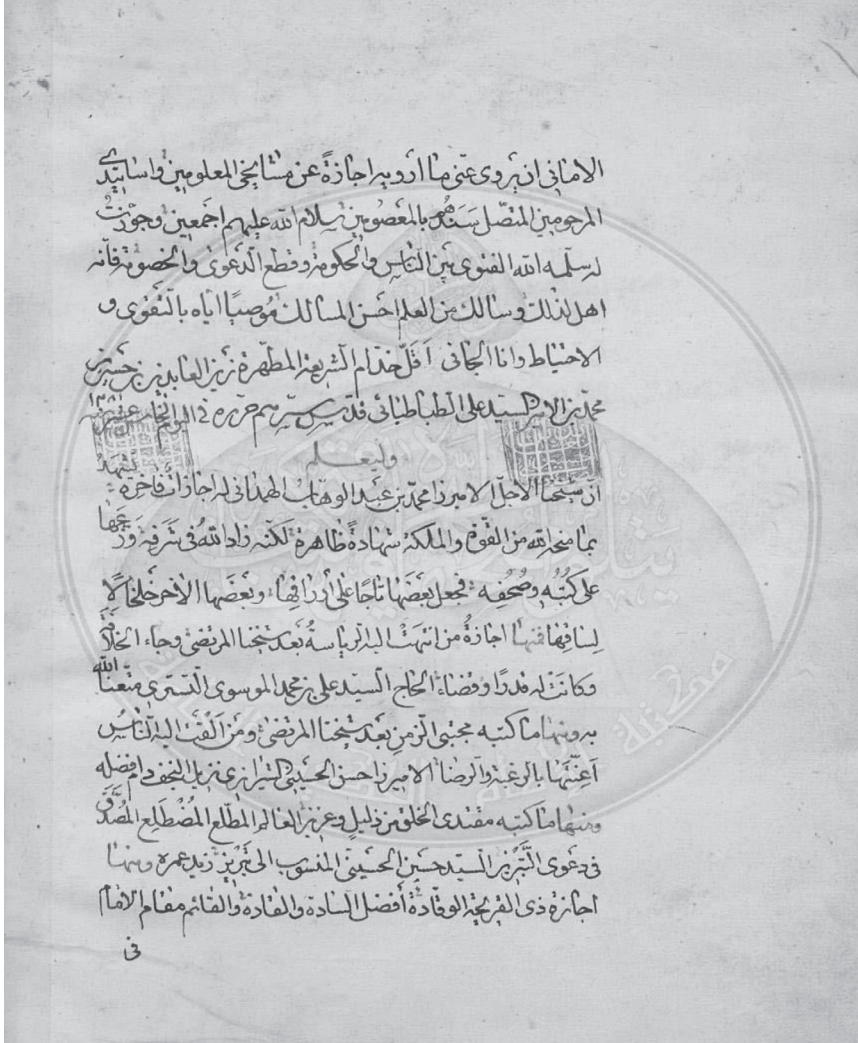 الاماني ان يروى عنّى ما ارويه اجازةً عن مشايخى المعلومين واساتيدى
المرحومين المتصل سندهم بالمعصومين سلام الله عليهم اجمعين وجوّزتُ
له سلّمه الله الفتوى بين الناس والحكومة وقطع الدعوى والخصومة فانّه
اهل لذلك وسالك من العلم احسن المسالك مُوصيًا اياه بالتقوى و
الاحتياط وانا الجانى اقلّ خدام الشريعة المطهرة زين العابدين بن حسين بن
محمد بن الامير السيد على الطباطبائى قدّس سرّهم حرّره فى اليوم عشر
١٢٨١
وليعلم
انّ شيخنا الاجلّ الاميرزا محمد بن عبد الوهاب الهمدانى له اجازات فاخرة تشهد
بما منحه الله من القوة والملكة شهادةً ظاهرة لكنّه زاد الله فى شرفه وزّعها
على كتبه وصحفه فجعل بعضها تاجًا على اوراقها وبعضها الآخر خلخالًا
لساقها فمنها اجازةُ من انتهت اليه الرياسةُ بعد شيخنا المرتضى وجاء الخلافة
وكانت له قدرًا وقضاء الحاج السيد على بن محمد الموسوى التسترى متّعنا الله
به ومنها ما كتبه مجتبى الزمن بعد شيخنا المرتضى ومن القت اليه الناس
اعنّتها بالرغبة والرضا الاميرزا حسن الحسينى الشيرازى نزيل النجف دام فضله
ومنها ما كتبه مقتدى الخلق من ذليل وعزيز العالم المطّلع المُضطلع المُصدَّق
فى دعوى التبرّز السيد حسين الحسينى المنسوب الى تبريز زيد عمره ومنها
اجازة ذى القريحة الوقادة أفضل السادة والقادة والقائم مقام الامام
فى